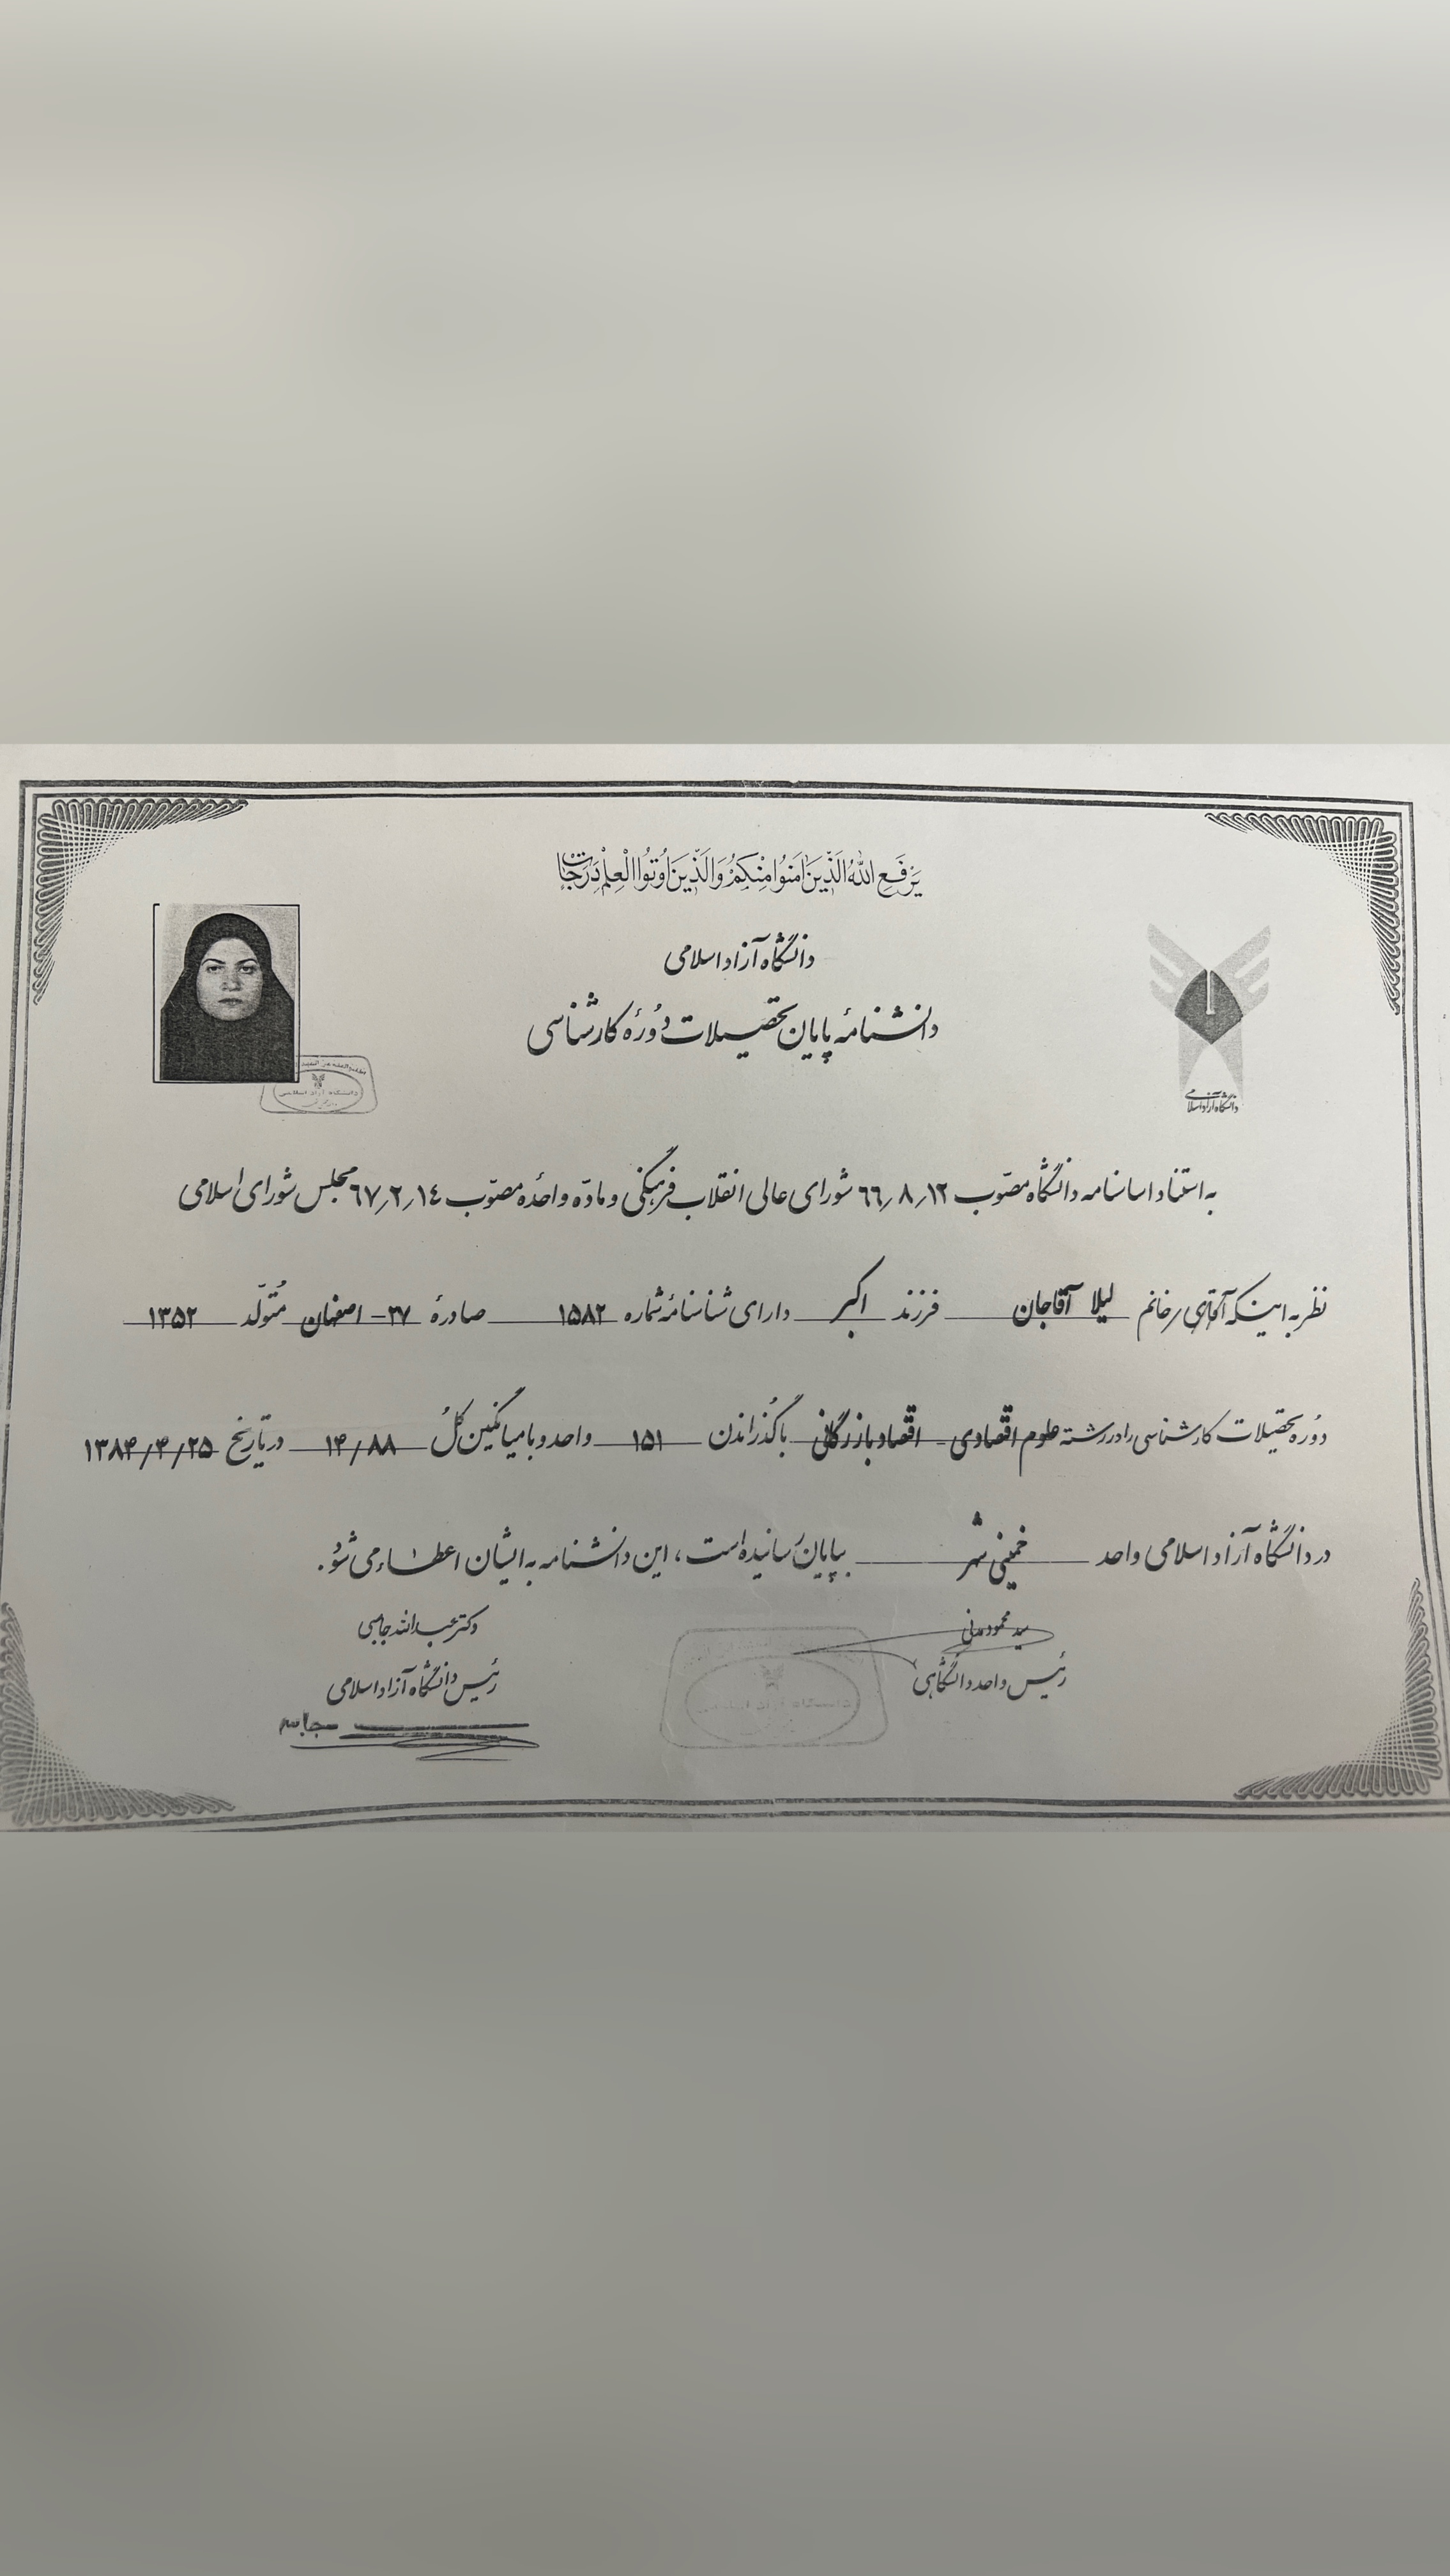 یَرْفَعِ اللهُ الَّذینَ اٰمَنُوا مِنْکُمْ وَالَّذینَ اُوتُوا الْعِلْمَ دَرَجٰاتٍ
دانشگاه آزاد اسلامی
دانشنامهٔ پایان تحصیلات دورهٔ کارشناسی
دانشگاه آزاد اسلامی
دانشگاه آزاد اسلامی
به استناد اساسنامه دانشگاه مصوّب ۶۶٫۸٫۱۲ شورای عالی انقلاب فرهنگی و مادّه واحدٔه مصوّب ۶۷٫۲٫۱۴ مجلس شورای اسلامی
نظر به اینکه آقای/خانم لیلا آقاجان فرزند اکبر دارای شناسنامهٔ شماره ۱۵۸۲ صادرهٔ ۲۷- اصفهان مُتولّد ۱۳۵۲
دوره تحصیلات کارشناسی را در رشته علوم اقتصادی - اقتصاد بازرگانی با گذراندن ۱۵۱ واحد و با میانگین کل ۱۴/۸۸ در تاریخ ۱۳۸۴/۴/۲۵
در دانشگاه آزاد اسلامی واحد خمینی شهر بپایان رسانیده است، این دانشنامه به ایشان اعطاء می شود.
سید محمود مدنی
رئیس واحد دانشگاهی
دکتر عبدالله جاسبی
رئیس دانشگاه آزاد اسلامی
دانشگاه آزاد اسلامی